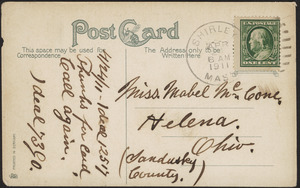 Post Card
This space may be used for
Correspondence.
The Address only to be
Written Here.
SHIRLEY
6 AM
1911
MASS
U.S. POSTAGE
ONE CENT
Thanks for card,
Call again.
Ideal 7380.
Miss Mabel Mc Cone,
Helena,
Ohio.
(Sandusky
County.)